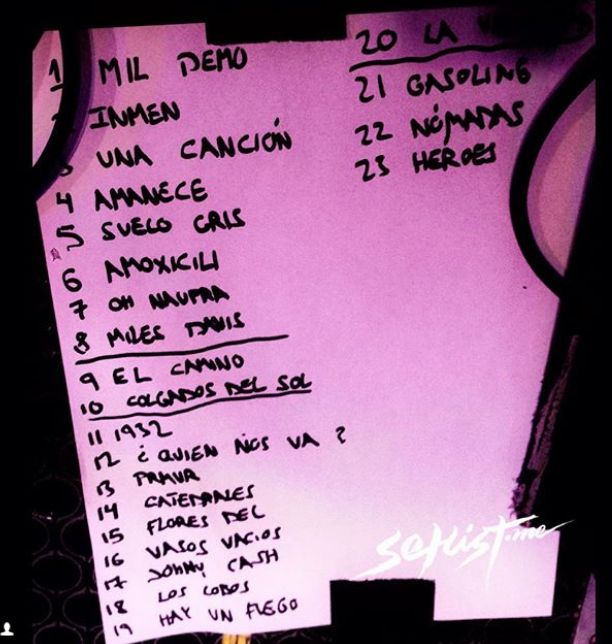 1 MIL DEMO
INMEN
3 UNA CANCIÓN
4 AMANECE
5 SUELO GRIS
6 AMOXICILI
7 OH NAUFRA
8 MILES DAVIS
9 EL CAMINO
10 COLGADOS DEL SOL
11 1932
12 ¿QUIEN NOS VA?
13 PRAVDA
14 CATEDRALES
15 FLORES DEL
16 VASOS VACIOS
17 JOHNNY CASH
18 LOS LOBOS
19 HAY UN FUEGO
20 LA
21 GASOLINE
22 NÓMADAS
23 HEROES
setlist.me